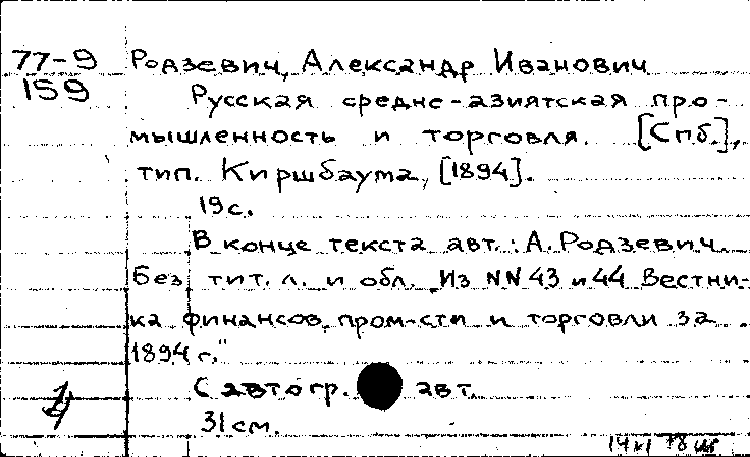 77-9
159
Родзевич, Александр Иванович
Русская средне-азиятская про-
мышленность и торговля. [Спб.],
тип. Киршбаума, [1894].
19 с.
В конце текста авт.: А. Родзевич.
Без тит. л. и обл. „Из NN 43 и 44 Вестни-
ка финансов, пром-сти и торговли за
1894 г."
С автогр. авт.
31 см.